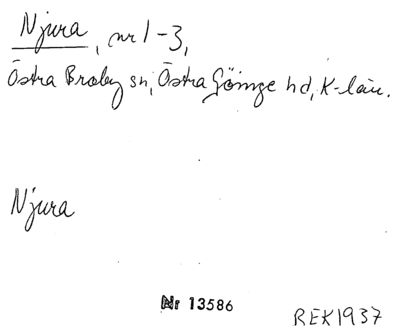 Njura, nr 1-3,
Östra Broby sn, Östra Göinge hd, K-län.
Njura
Nr 13586
REK1937